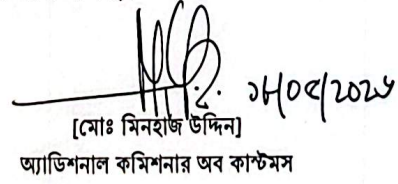 ১৮/০৫/২০২৬
[মোঃ মিনহাজ উদ্দিন]
অ্যাডিশনাল কমিশনার অব কাস্টমস